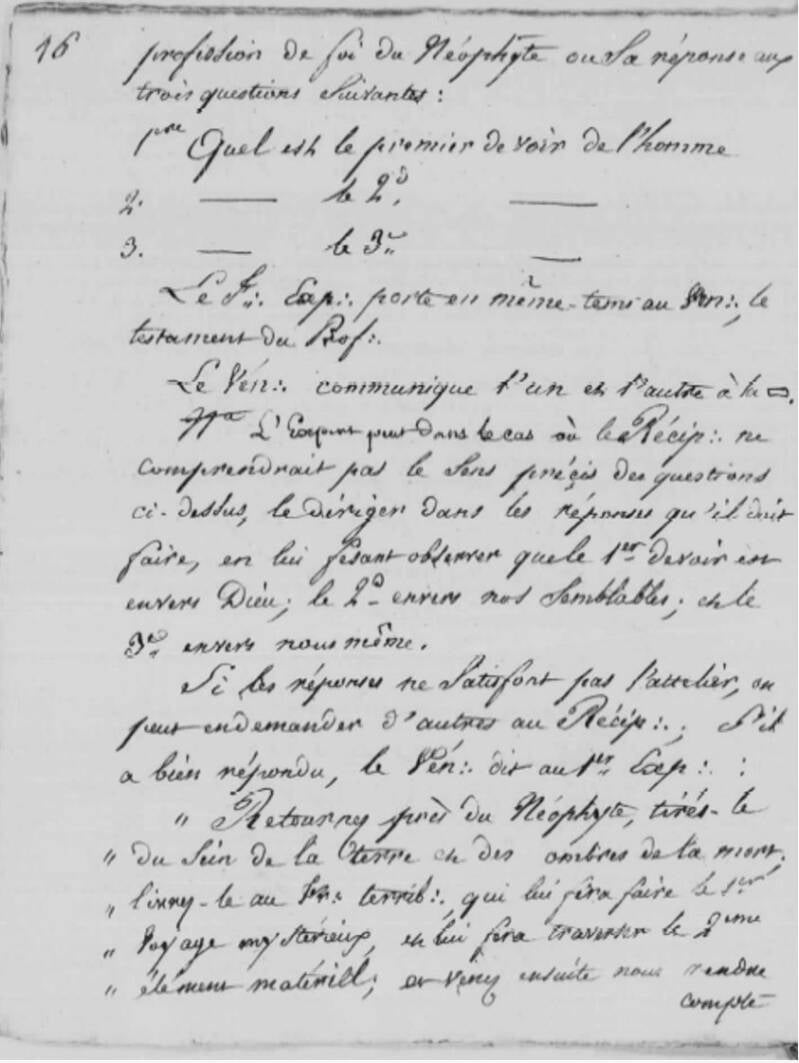 16
profession de foi du Néophyte ou Sa réponse aux
trois questions Suivantes :
1re Quel est le premier devoir de l'homme
2. —— le 2d. ——
3. —— le 3e ——
Le f.. Exp.. porte en même-tems au Vén.., le
testament du Prof..
Le Vén.. communique l'un et l'autre à la ▭.
Na L'Expert peut dans le cas où le Récip.. ne
comprendrait pas le Sens préçis des questions
ci-dessus, le dériger dans les réponses qu'il doit
faire, en lui fesant observer que le 1er devoir est
envers Dieu; le 2d envers nos Semblables; et le
3e envers nous même.
Si les réponses ne Satisfont pas l'attelier, on
peut en demander d'autres au Récip..; S'il
a bien répondu, le Vén.. dit au 1er Exp.. :
" Retournez près du Néophyte, tirés-le
" du Sein de la terre et des ombres de la mort,
" livrez-le au terrib.., qui lui fera faire le 1er
" Voyage mystérieux, et lui fera traverser le 2eme
" élément matériell; et venez ensuite nous rendre
compte